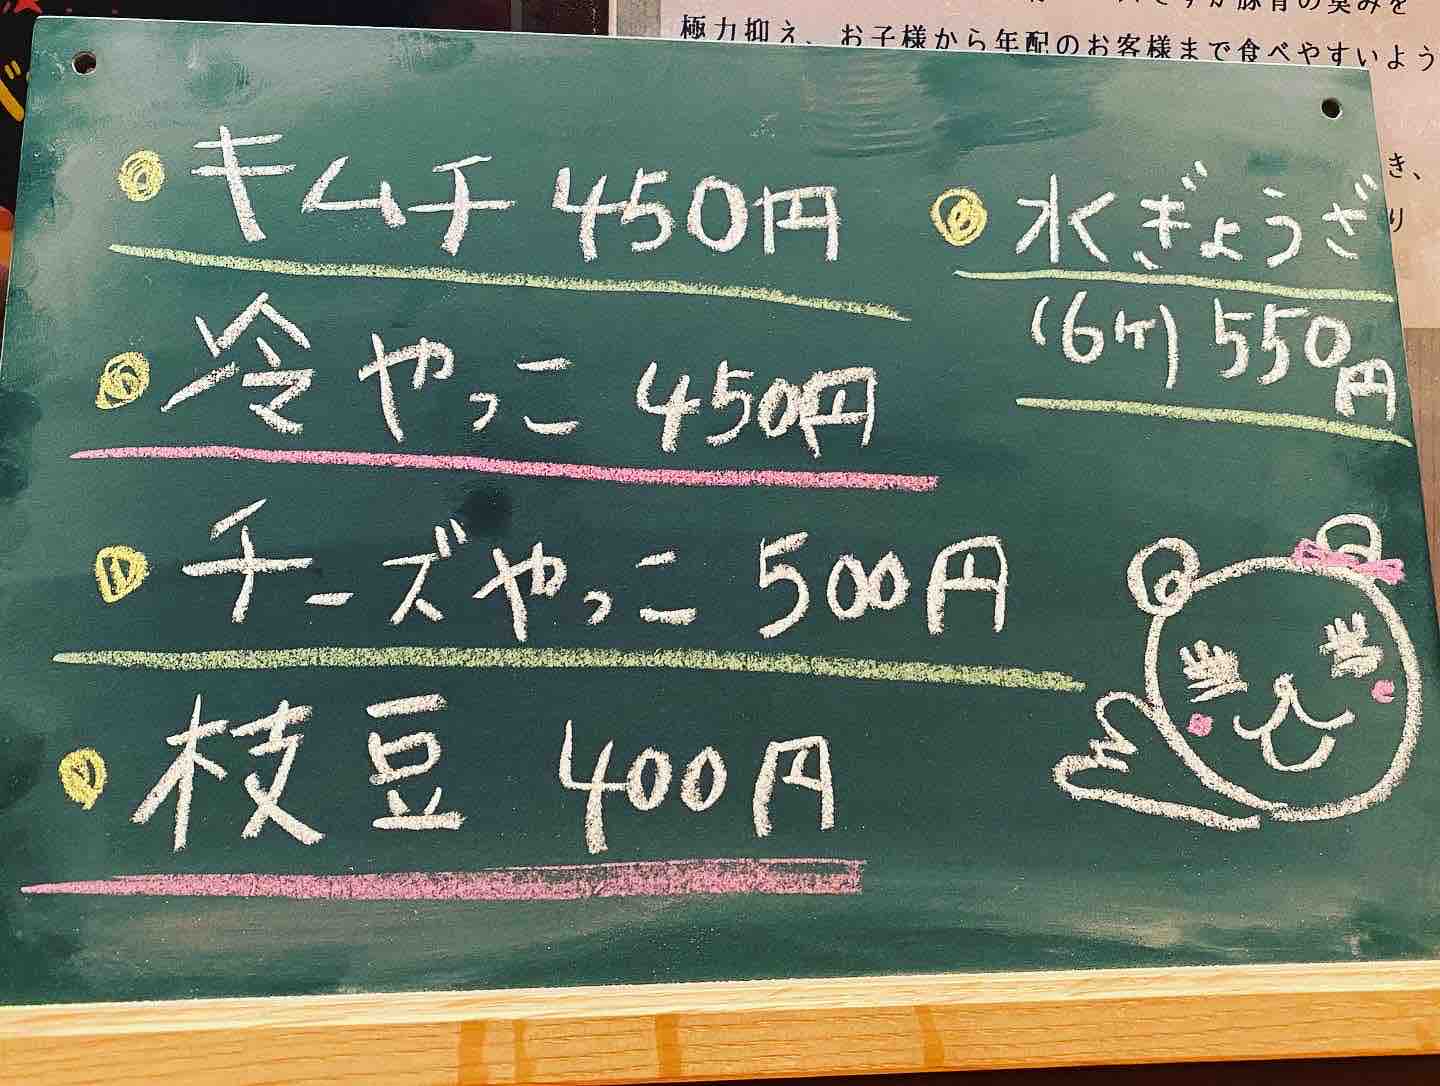 極力抑え、お子様から年配のお客様まで食べやすいよう
き、
り
キムチ 450円
冷やっこ 450円
チーズやっこ 500円
枝豆 400円
水ぎょうざ
(6ヶ) 550円